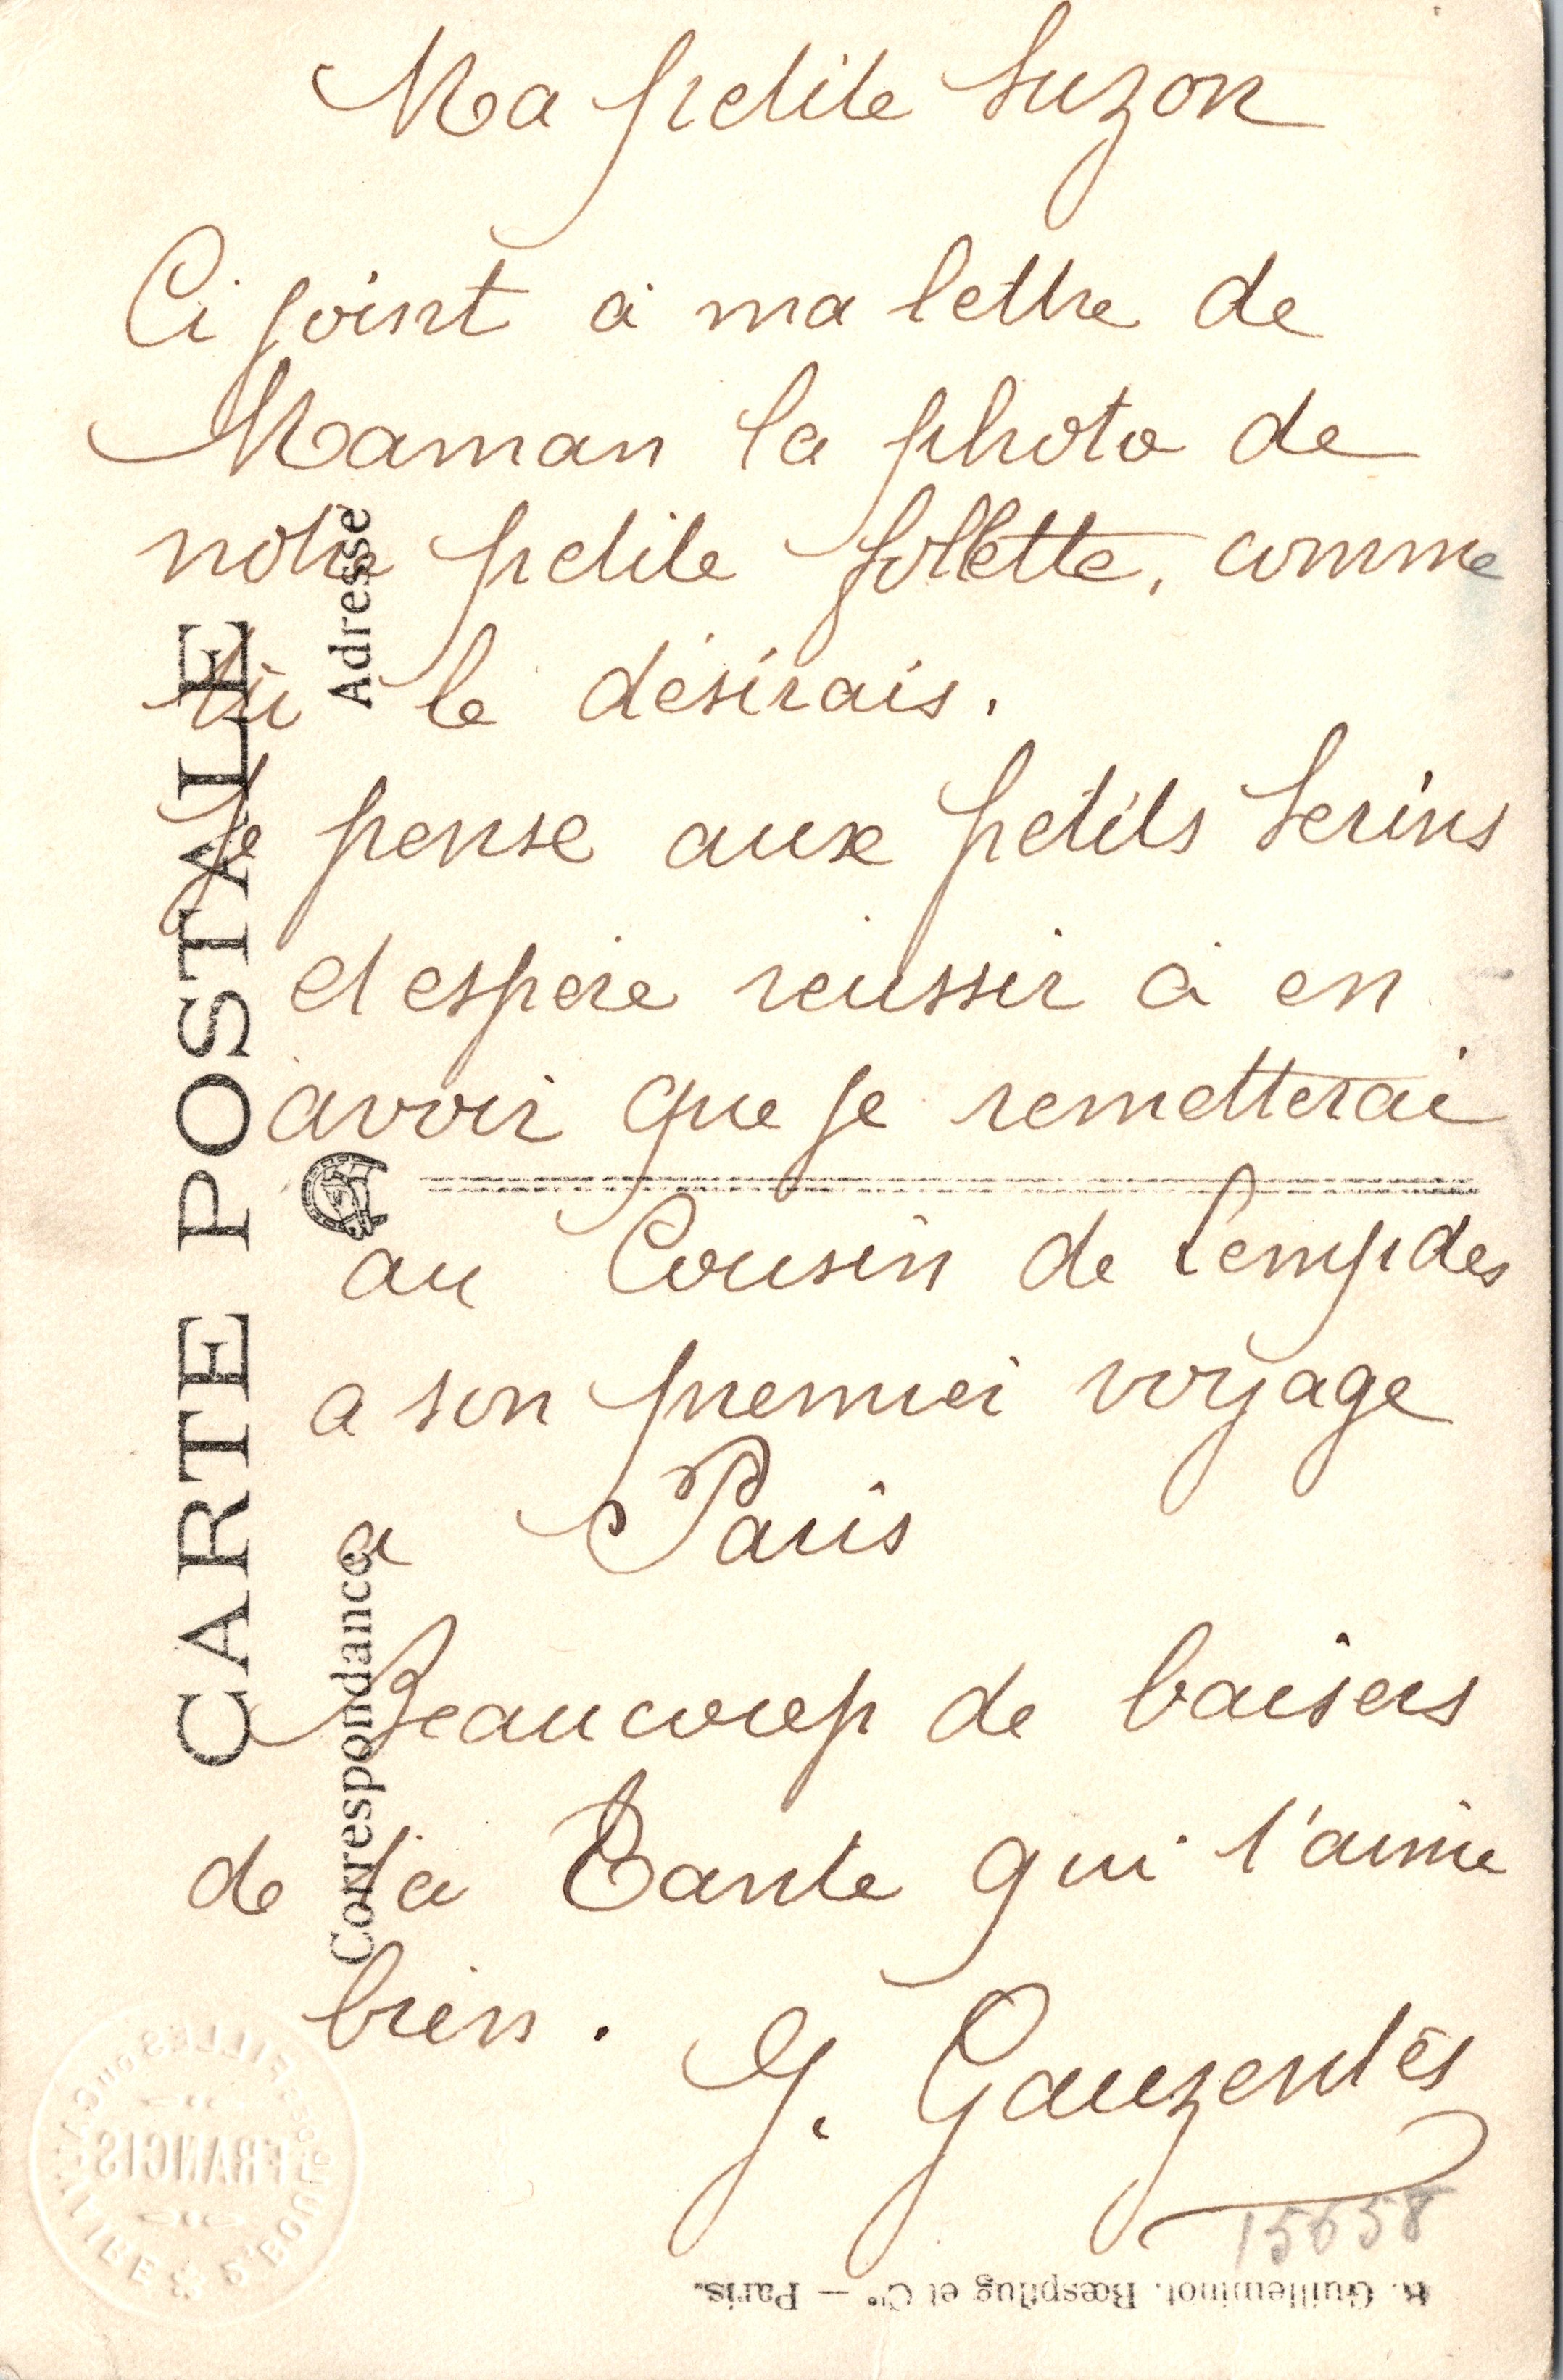 Ma petite Suzon
Ci joint à ma lettre de
Maman la photo de
notre petite follette, comme
tu le désirais.
Je pense aux petits serins
et espère réussir à en
avoir que je remetterai
au Cousin de Lempdes
a son premier voyage
a Paris
Beaucoup de baisers
de ta Tante qui t'aime
bien.
G. Gauzentès
15658
CARTE POSTALE
Correspondance
Adresse
R. Guilleminot, Bœspflug et Cie — Paris.
FRANCIS